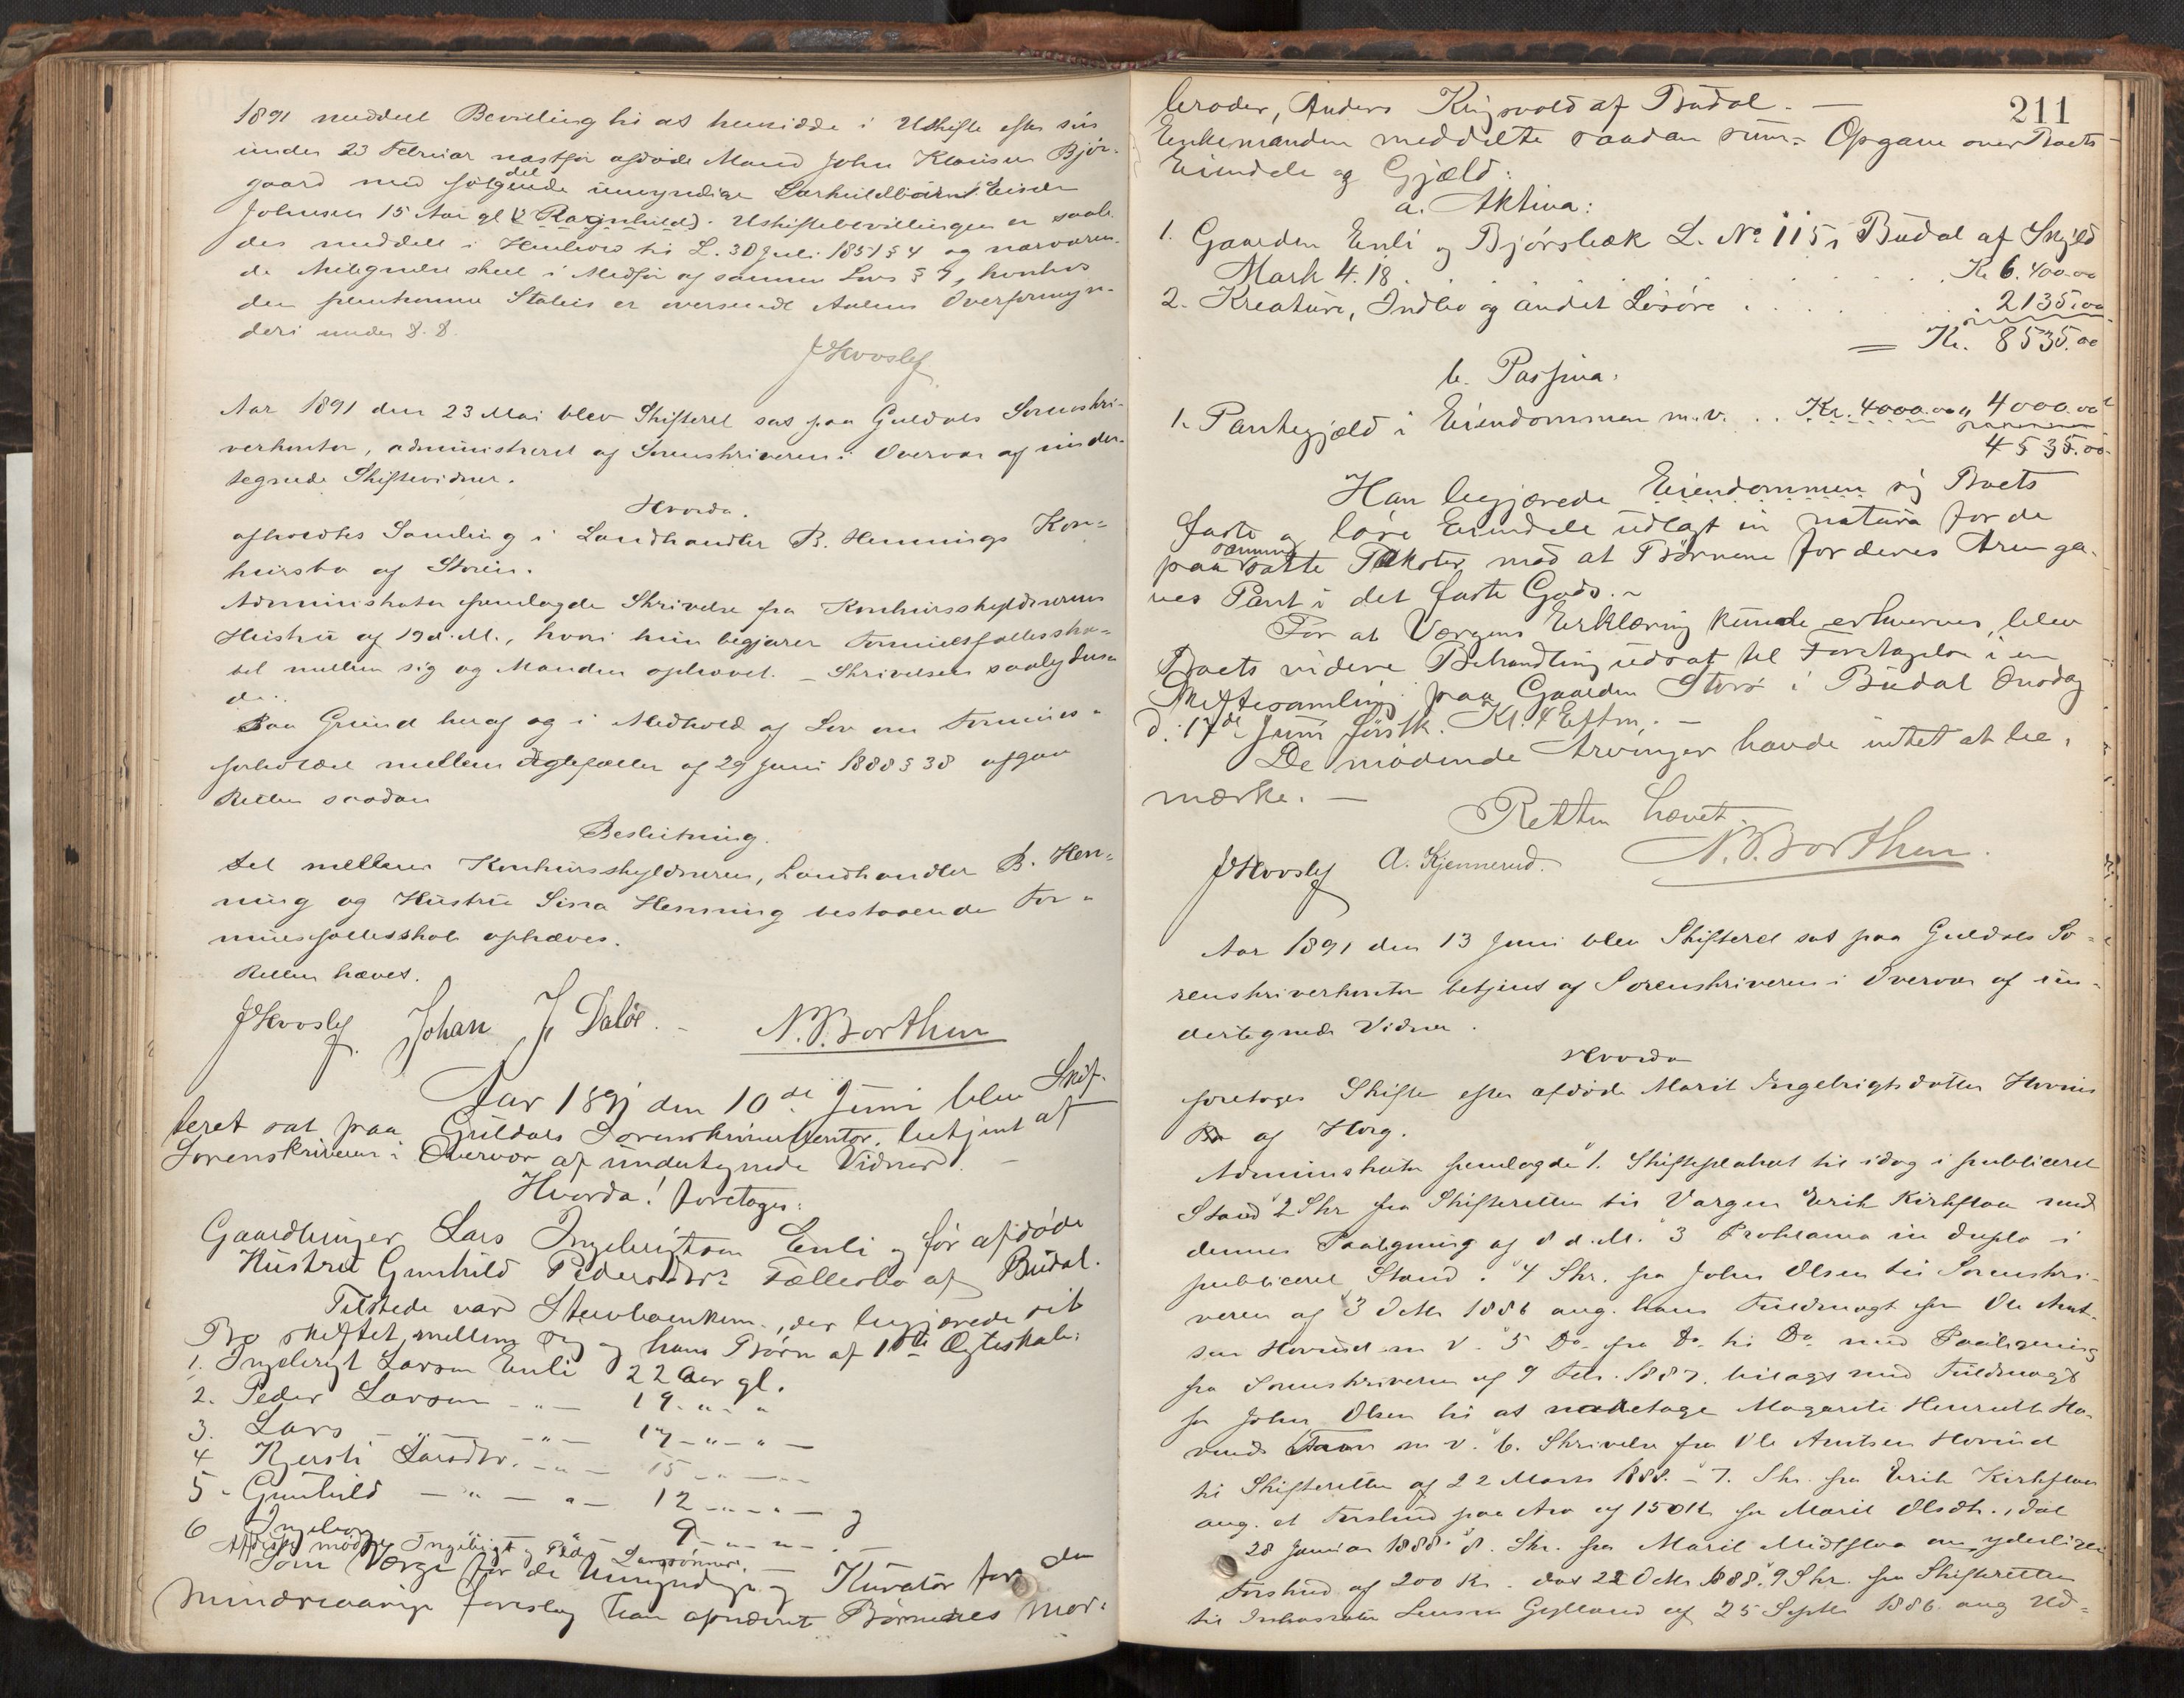 1891 meddelt Bevilling til at hensidde i Uskifte efter sin
under 23 Februar næstfør afdøde Mand John Klausen Bjør-
gaard med følgende umyndige Særkuldbarn: Eisten
Johnsen 15 Aar gl (2 Ragnhild). Uskiftebevillingen er saale
des meddelt i Henhold til L. 30 Juli 1851 § 4 og nærværen-
de Anlegnelse skeet i Medfør af samme Lovs § 9, hvorhos
den fremkomne Status er oversendt Aalens Overformyn-
deri under d. d.
JHvoslef
Aar 1891 den 23 Mai blev Skifteret sat paa Guldals Sorenskri-
verkontor, administreret af Sorenskriveren i Overvær af under-
tegnede Skiftevidner.
Hvorda.
afholdtes Samling i Landhandler B. Hennings Kon-
kursbo af Støren.
Administrator fremlagde Skrivelse fra Konkursskyldnerens
Hustru af 19 d. M., hvori hun begjærer Formuesfællesska-
bet mellem sig og Manden ophævet. - Skrivelsen saalyden-
de:.
Paa Grund heraf og i Medhold af Lov om Formues-
forholdet mellem Ægtefæller af 29 Juni 1888 § 38 afgav
Retten saadan
Beslutning.
Det mellem Konkursskyldneren, Landhandler B. Hen-
ning og Hustru Sina Henning bestaaende For-
muesfællesskab ophæves.
Retten hævet.
JHvoslef Johan J. Daløe. N. P. Borthen
Aar 1891 den 10de Juni blev Skif-
teret sat paa Guldals Sorenskriverkontor, betjent af
Sorenskriveren i Overvær af undertegnede Vidner. -
Hvorda! foretoges:
Gaardbruger Lars Ingebrigtsen Enli og før afdøde
Hustru Gunhild Pedersdtrs Fællesbo af Budal.
Tilstede var Stervboenkem., der begjærede sit
Bo skiftet mellem sig og hans Børn af 1ste Ægteskab:
1. Ingebrigt Larsen Enli 22 Aar gl.
2. Peder Larsen - " - 19 - " - "
3. Lars - " - - " - 17 - " - " -
4 Kjersti Larsdtr. - " - 15 - " - " -
5 - Gunhild - " - " - 12 - " - " - og
6 Ingebor 9 - " - " - . -
Af disse mødte Ingebrigt og Peder Larssønner.
Som Værge for de Umyndige og Kurator for den
mindreaarige foreslog han opnævnt Børnenes Mor-
211
broder, Anders Kringsvold af Budal. -
Enkemanden meddelte saadan sum- Opgave over Boets
Eiendele og Gjæld:
a. Aktiva:
1. Gaarden Enli og Bjørsbæk L. No 115 i Budal af Skyld
Mark 4.18 . . . . . . Kr 6.400.00
2. Kreature, Indbo og andet Løsøre . . . . . 2135.00
= Kr. 8535.00
b. Passiva:
1. Pantegjæld i Eiendommen m.v. . . Kr. 4000.00 4000.00
4535.00.
Han begjærede Eiendommen sig Boets
faste og løse Eiendele udlagt in natura for de
paa samme satte Takster mod at Børnene for deres Arv ga-
ves Pant i det faste Gods. ~
For at Værgens Erklæring kunde erhverves, blev
Boets videre Behandling udsat til Foretagelse i en
Skiftesamling paa Gaarden Storø i Budal Onsdag
d. 17de Juni førstk. Kl. 4 Eftm. -
De mødende Arvinger havde intet at be-
mærke. -
Retten hævet.
JHvoslef A. Kjennerud. N. P. Borthen.
Aar 1891 den 13 Juni blev Skifteret sat paa Guldals So-
renskriverkontor betjent af Sorenskriveren i Overvær af un-
dertegnede Vidner.
Hvorda
foretoges Skifte efter afdøde Marit Ingebrigtsdatter Hovins
Bo af Horg.
Administrator fremlagde "1. Skifteplakat til idag i publiceret
Stand "2 Skr fra Skifteretten til Værgen Erik Kirkfloa med
dennes Paategning af 8 d. M. "3 Proklama in duplo i
publiceret Stand. "4 Skr. fra John Olsen til Sorenskri-
veren af 3 Octb 1886 ang. hans Fuldmagt fra Ole Amt-
sen Hovind m v. "5 Do. fra Do. til Do. med Paategning
fra Sorenskriveren af 9 Febr. 1887, bilagt med Fuldmagt
for John Olsen til at modtage Magarete Henriette Ho-
vinds Arv m v. "6. Skrivelse fra Ole Amtsen Hovind
til Skifteretten af 22 Marts 1888. - "7. Skr. fra Erik Kirkfloa
ang. et Forskud paa Arv af 150 Kr for Marit Olsdtr., dat
28 Januar 1888. "8. Skr. fra Marit Midtfloa om yderligere
Forskud af 200 Kr. dat 22 Octb. 1888. "9 Skr. fra Skifteretten
til Inkassator Lensm Gylland af 25 Septb 1886 ang Ud-